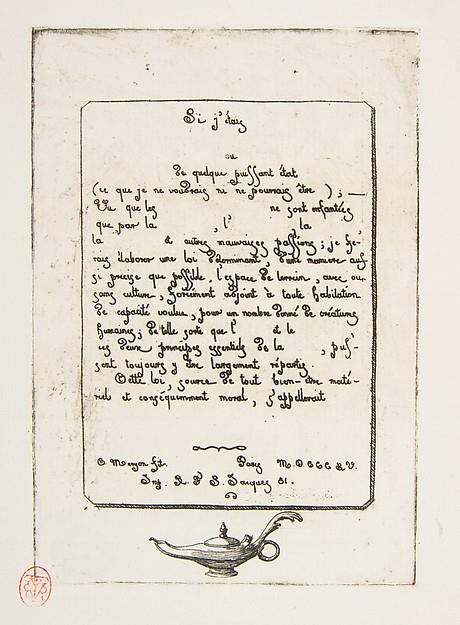 Si j'étais
ou
de quelque puissant état
(ce que je ne voudrais ni ne pourrais être ) ; —
Vu que les ne sont enfantées
que par la , l' la
la et autres mauvaises passions ; je fe-
rais élaborer une loi déterminant, d'une manière aus-
si précise que possible, l'espace de terrain, avec ou
sans culture, forcément adjoint à toute habitation
de capacité voulue, pour un nombre donné de créatures
humaines ; de telle sorte que l' et le
ces deux principes essentiels de la , puis-
sent toujours y être largement répartis
Cette loi, source de tout bien-être maté-
riel et conséquemment moral, s'appellerait
C. Meryon fit. Paris
Imp. R. F S. Jacques 81.